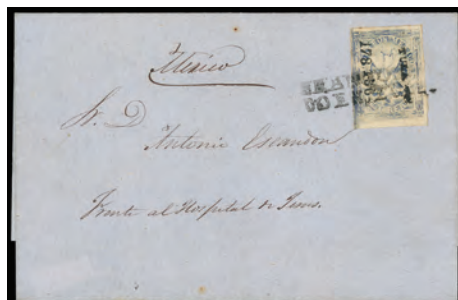 Mexico
Sr. D.
Antonio Escandon
Frente al Hospital de Jesus.